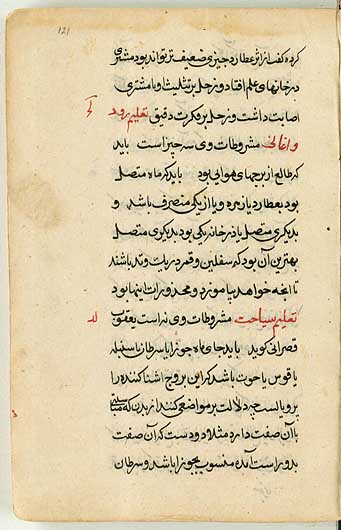 121
کرده کفت از اثر عطارد چیزی ضعیف تر تواند بود مشتری
در خانهای علم افتاد و زحل بر تثلیث او با مشتری
اصابت داشت و زحل بر فکرت دقیق تعلیم رود
و اغانی مشروطات وی سه چیز است باید
که طالع از برجهای هوایی بود باید که ماه متصل
بود بعطارد یا زهره و یا از یکی منصرف باشد و
بدیکری متصل یا در خانه یکی بود بدیکری متصل
بهترین آن بود که سفلین و قمر در بیت وتد باشند
تا انچه خواهد بیاموزد و محذورات اینها بود
تعلیم سیاحت مشروطات وی نه است یعقوب
قصرانی کوید باید جای ماه جوزا یا سرطان یا سنبله
یا قوس یا حوت باشد که این بروج اشنا کننده را
بر و دلالت بر مواضعی کنند از بدن که
با آن صفت دارد مثلا دو دست که آن صفت
بدو راست آمده منسوب بجوزا باشد و سرطان